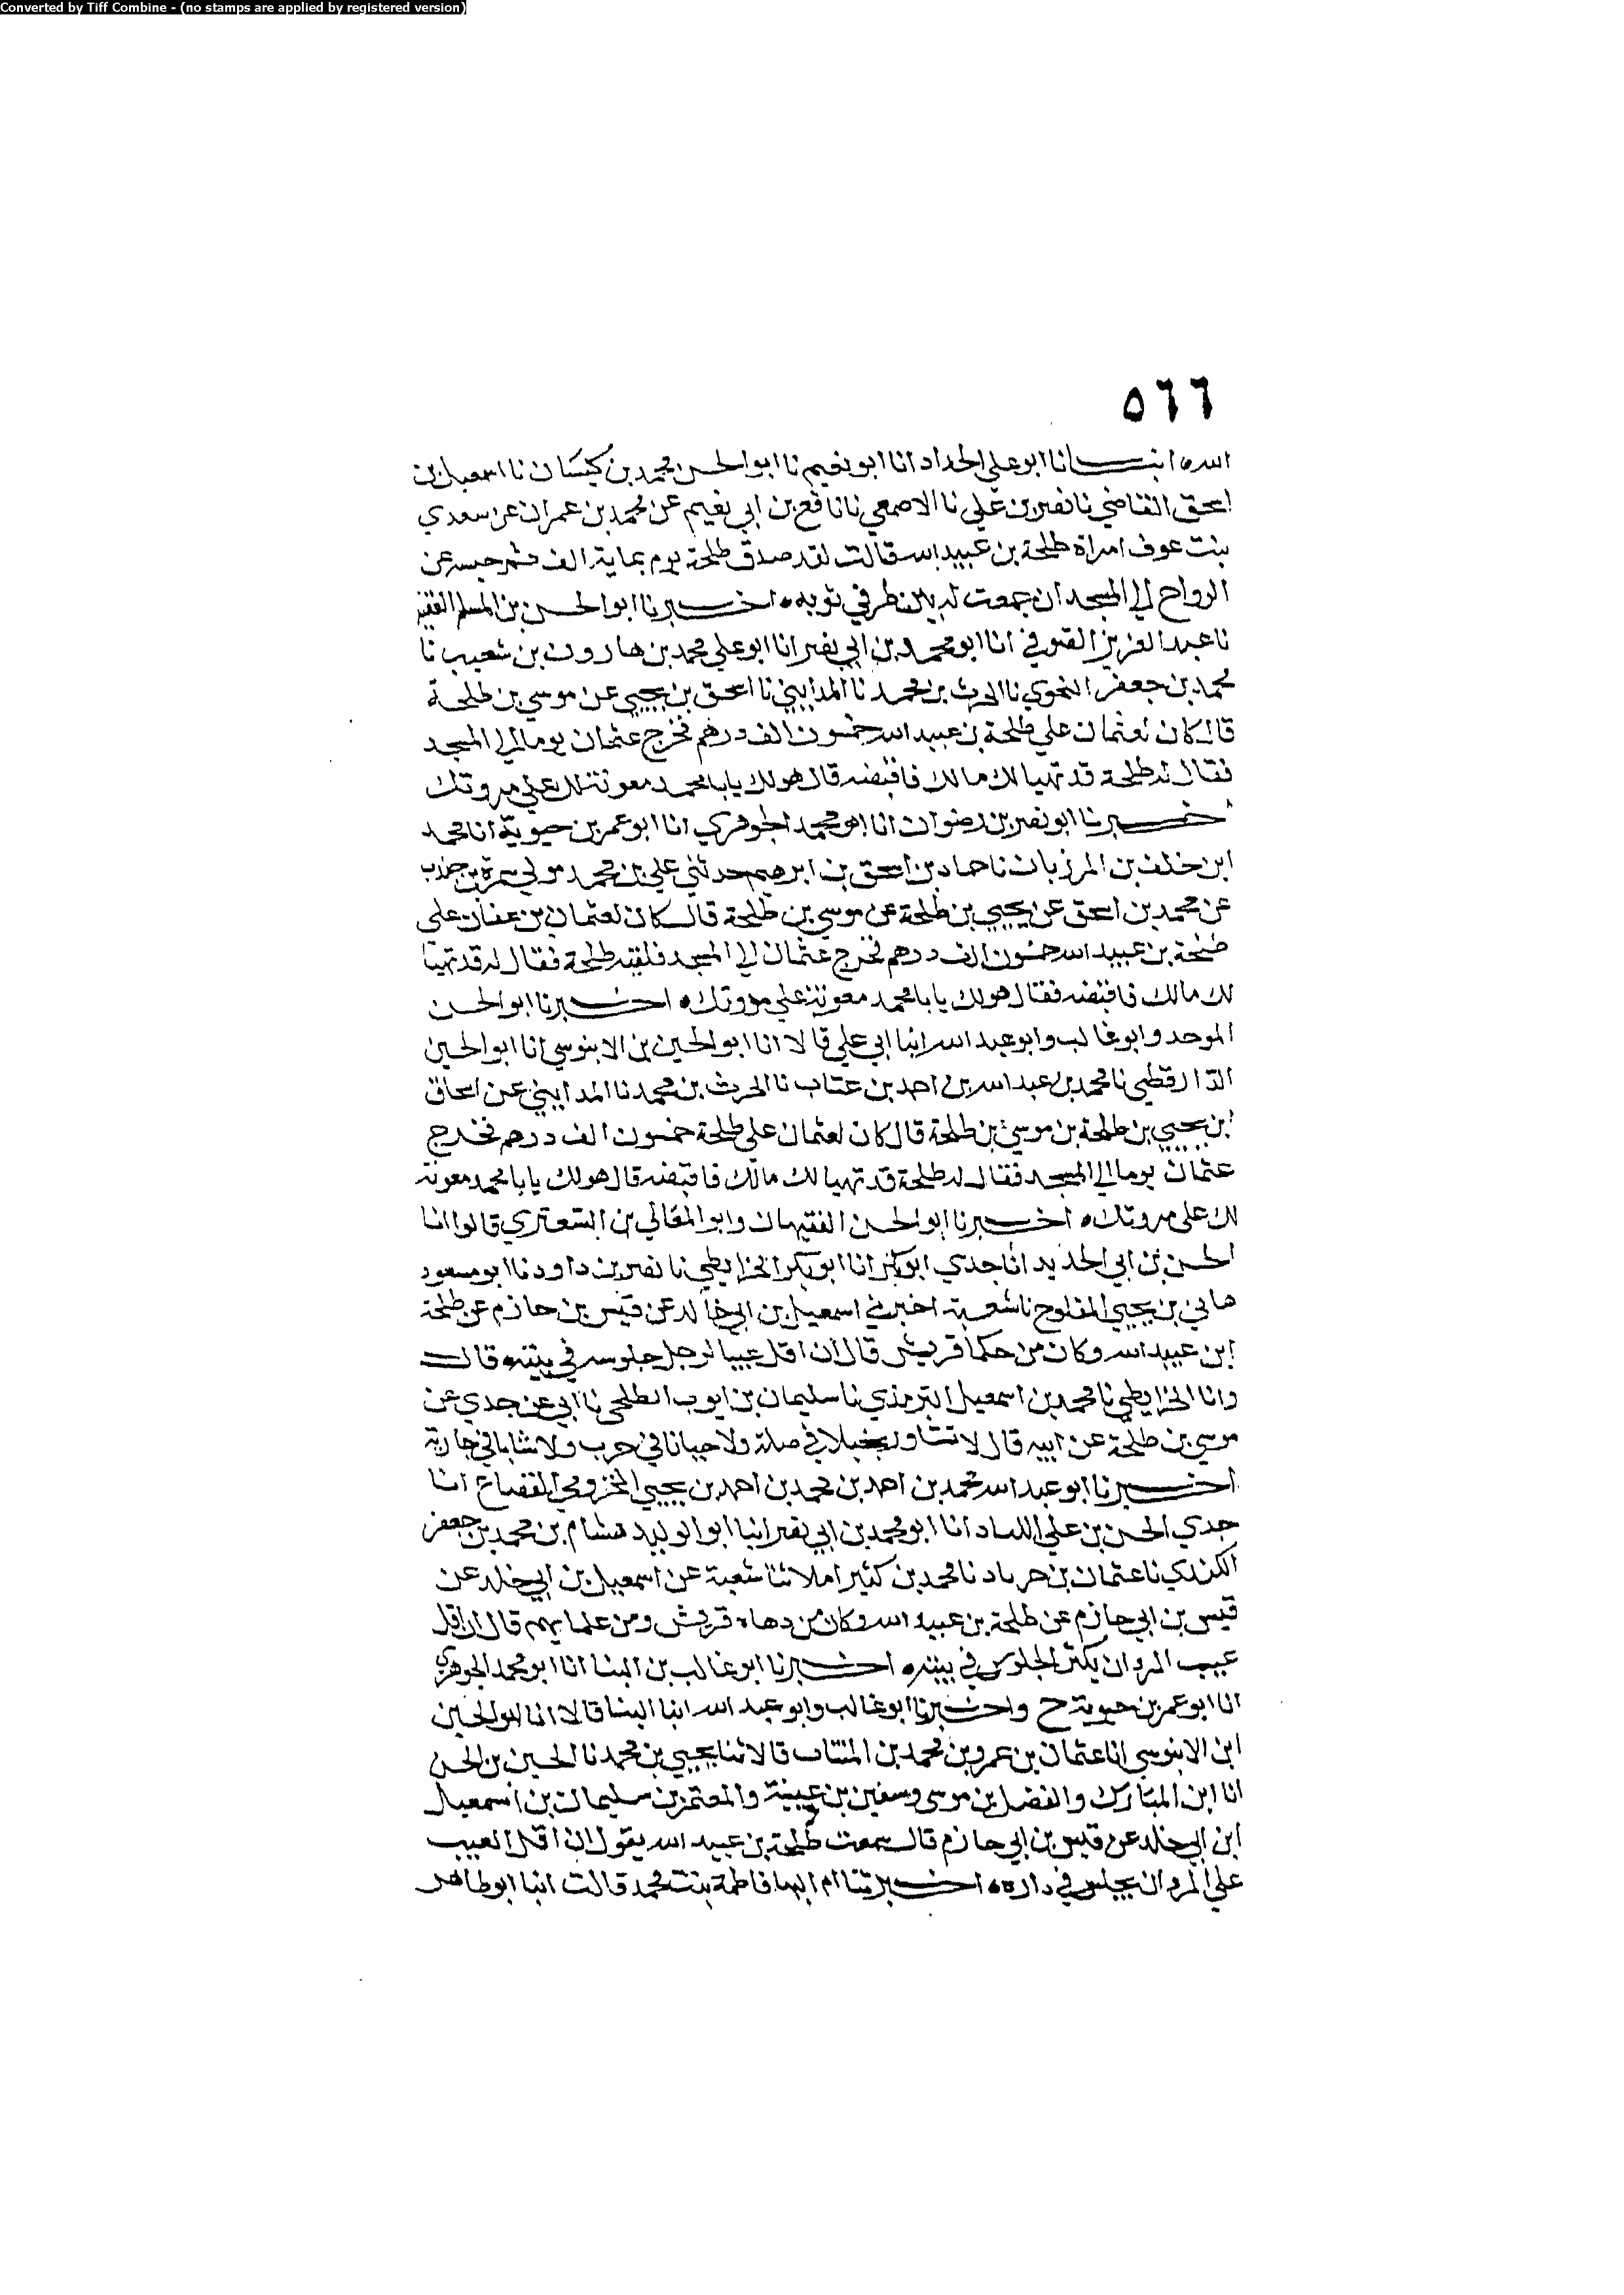 Converted by Tiff Combine - (no stamps are applied by registered version)
٥٦٦
الله ٥ انبـــانا ابو علي الحداد انا ابو نعيم نا ابو الحسن محمد بن كيسان نا اسمعيل بن
اسحق القاضي نا نصر بن علي نا الاصمعي نا نافع بن ابي نعيم عن محمد بن عمران عن سعدي
بنت عوف امراة طلحة بن عبيد الله قالت لقد صدق طلحة يوم بماية الف ثم حبسه عن
الرواح الي المسجد ان جمعت له بين طرفي ثوبه ٥ اخـــبرنا ابو الحسن بن المسلم الفقيه
نا عبد العزيز الصوفي انا ابو محمد بن ابي نصر انا ابو علي محمد بن هارون بن شعيب نا
محمد بن جعفر النحوي نا الحرث بن محمد نا المدايني نا اسحق بن يحيي عن موسي بن طلحة
قال كان لعثمان علي طلحة بن عبيد الله خمسون الف درهم فخرج عثمان يوما الي المسجد
فقال له طلحة قد تهيا لك مالك فاقبضه قال هو لك يابا محمد معونة لك علي مروتك
اخـــبرنا ابو نصر بن رضوان انا ابو محمد الجوهري انا ابو عمر بن حيوية انا محمد
ابن خلف بن المرزبان نا حماد بن اسحق بن ابرهيم حدثني علي بن محمد مولي سمرة بن جندب
عن محمد بن اسحق عن يحيي بن طلحة عن موسي بن طلحة قال كان لعثمان بن عفان علي
طلحة بن عبيد الله خمسون الف درهم فخرج عثمان الي المسجد فلقيه طلحة فقال له قد تهيا
لك مالك فاقبضه فقال هو لك يابا محمد معونة علي مروتك ٥ اخـــبرنا ابو الحسن
الموحد وابو غالب وابو عبد الله ابنا ابي علي قالا انا ابو الحسين بن الابنوسي انا ابو الحسين
الدارقطني نا محمد بن عبد الله بن احمد بن عتاب نا الحرث بن محمد نا المدايني عن اسحاق
بن يحيي بن طلحة بن موسي بن طلحة قال كان لعثمان علي طلحة خمسون الف درهم فخرج
عثمان يوما الي المسجد فقال له طلحة قد تهيا لك مالك فاقبضه قال هو لك يابا محمد معونة
لك علي مروتك ٥ اخـــبرنا ابو الحسن الفقيهان وابو المعالي بن الشعيري قالوا انا
الحسن بن ابي الحديد انا جدي ابو بكر انا ابو بكر الخرايطي نا نصر بن داود نا ابو مسعود
هاني بن يحيي المفلوج نا شعبة اخبرني اسمعيل بن ابي خالد عن قيس بن حازم عن طلحة
ابن عبيد الله وكان من حكما قريش قال ان اقل عيبا لرجل جلوسه في بيته ٥ قال
وانا الخرايطي نا محمد بن اسمعيل الترمذي نا سليمان بن ايوب الطلحي نا ابي عن جدي عن
موسي بن طلحة عن ابيه قال لا تشاور بخيلا في صلة ولا جبانا في حرب ولا شابا في جارية
اخـــبرنا ابو عبد الله محمد بن احمد بن محمد بن احمد بن يحيي المخزومي القضاع انا
جدي الحسن بن علي اللباد انا ابو محمد بن ابي نصر انبا ابو الوليد هشام بن محمد بن جعفر
الكندي نا عثمان بن خرزاد نا محمد بن كثير املا ثنا شعبة عن اسمعيل بن ابي خلد عن
قيس بن ابي حازم عن طلحة بن عبيد الله وكان من دهاه قريش ومن علمايهم قال ان اقل
عيب المر ان يكثر الجلوس في بيته ٥ اخـــبرنا ابو غالب بن البنا انا ابو محمد الجوهري
انا ابو عمر بن حيوية ح واخـــبرنا ابو غالب وابو عبد الله ابنا البنا قالا انا ابو الحسين
ابن الابنوسي انا عثمان بن عمرو بن محمد بن المنتاب قالا ثنا يحيي بن محمد نا الحسين بن الحسن
انا ابن المبارك والفضل بن موسي وسفين بن عيينة والمعتمر بن سليمان بن اسمعيل
ابن ابي خلد عن قيس بن ابي حازم قال سمعت طلحة بن عبيد الله يقول ان اقل العيب
علي المر ان يجلس في داره ٥ اخـــبرتنا ام البها فاطمة بنت محمد قالت انبا ابو طاهر